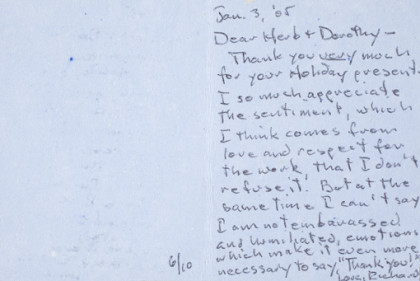 Jan. 3, '05
Dear Herb & Dorothy —
Thank you very much
for your Holiday present.
I so much appreciate
the sentiment, which
I think comes from
love and respect for
the work, that I don't
refuse it. But at the
same time I can't say
I am not embarassed
and humiliated, emotions
which make it even more
necessary to say, "Thank you!"
Love, Richard
6/10